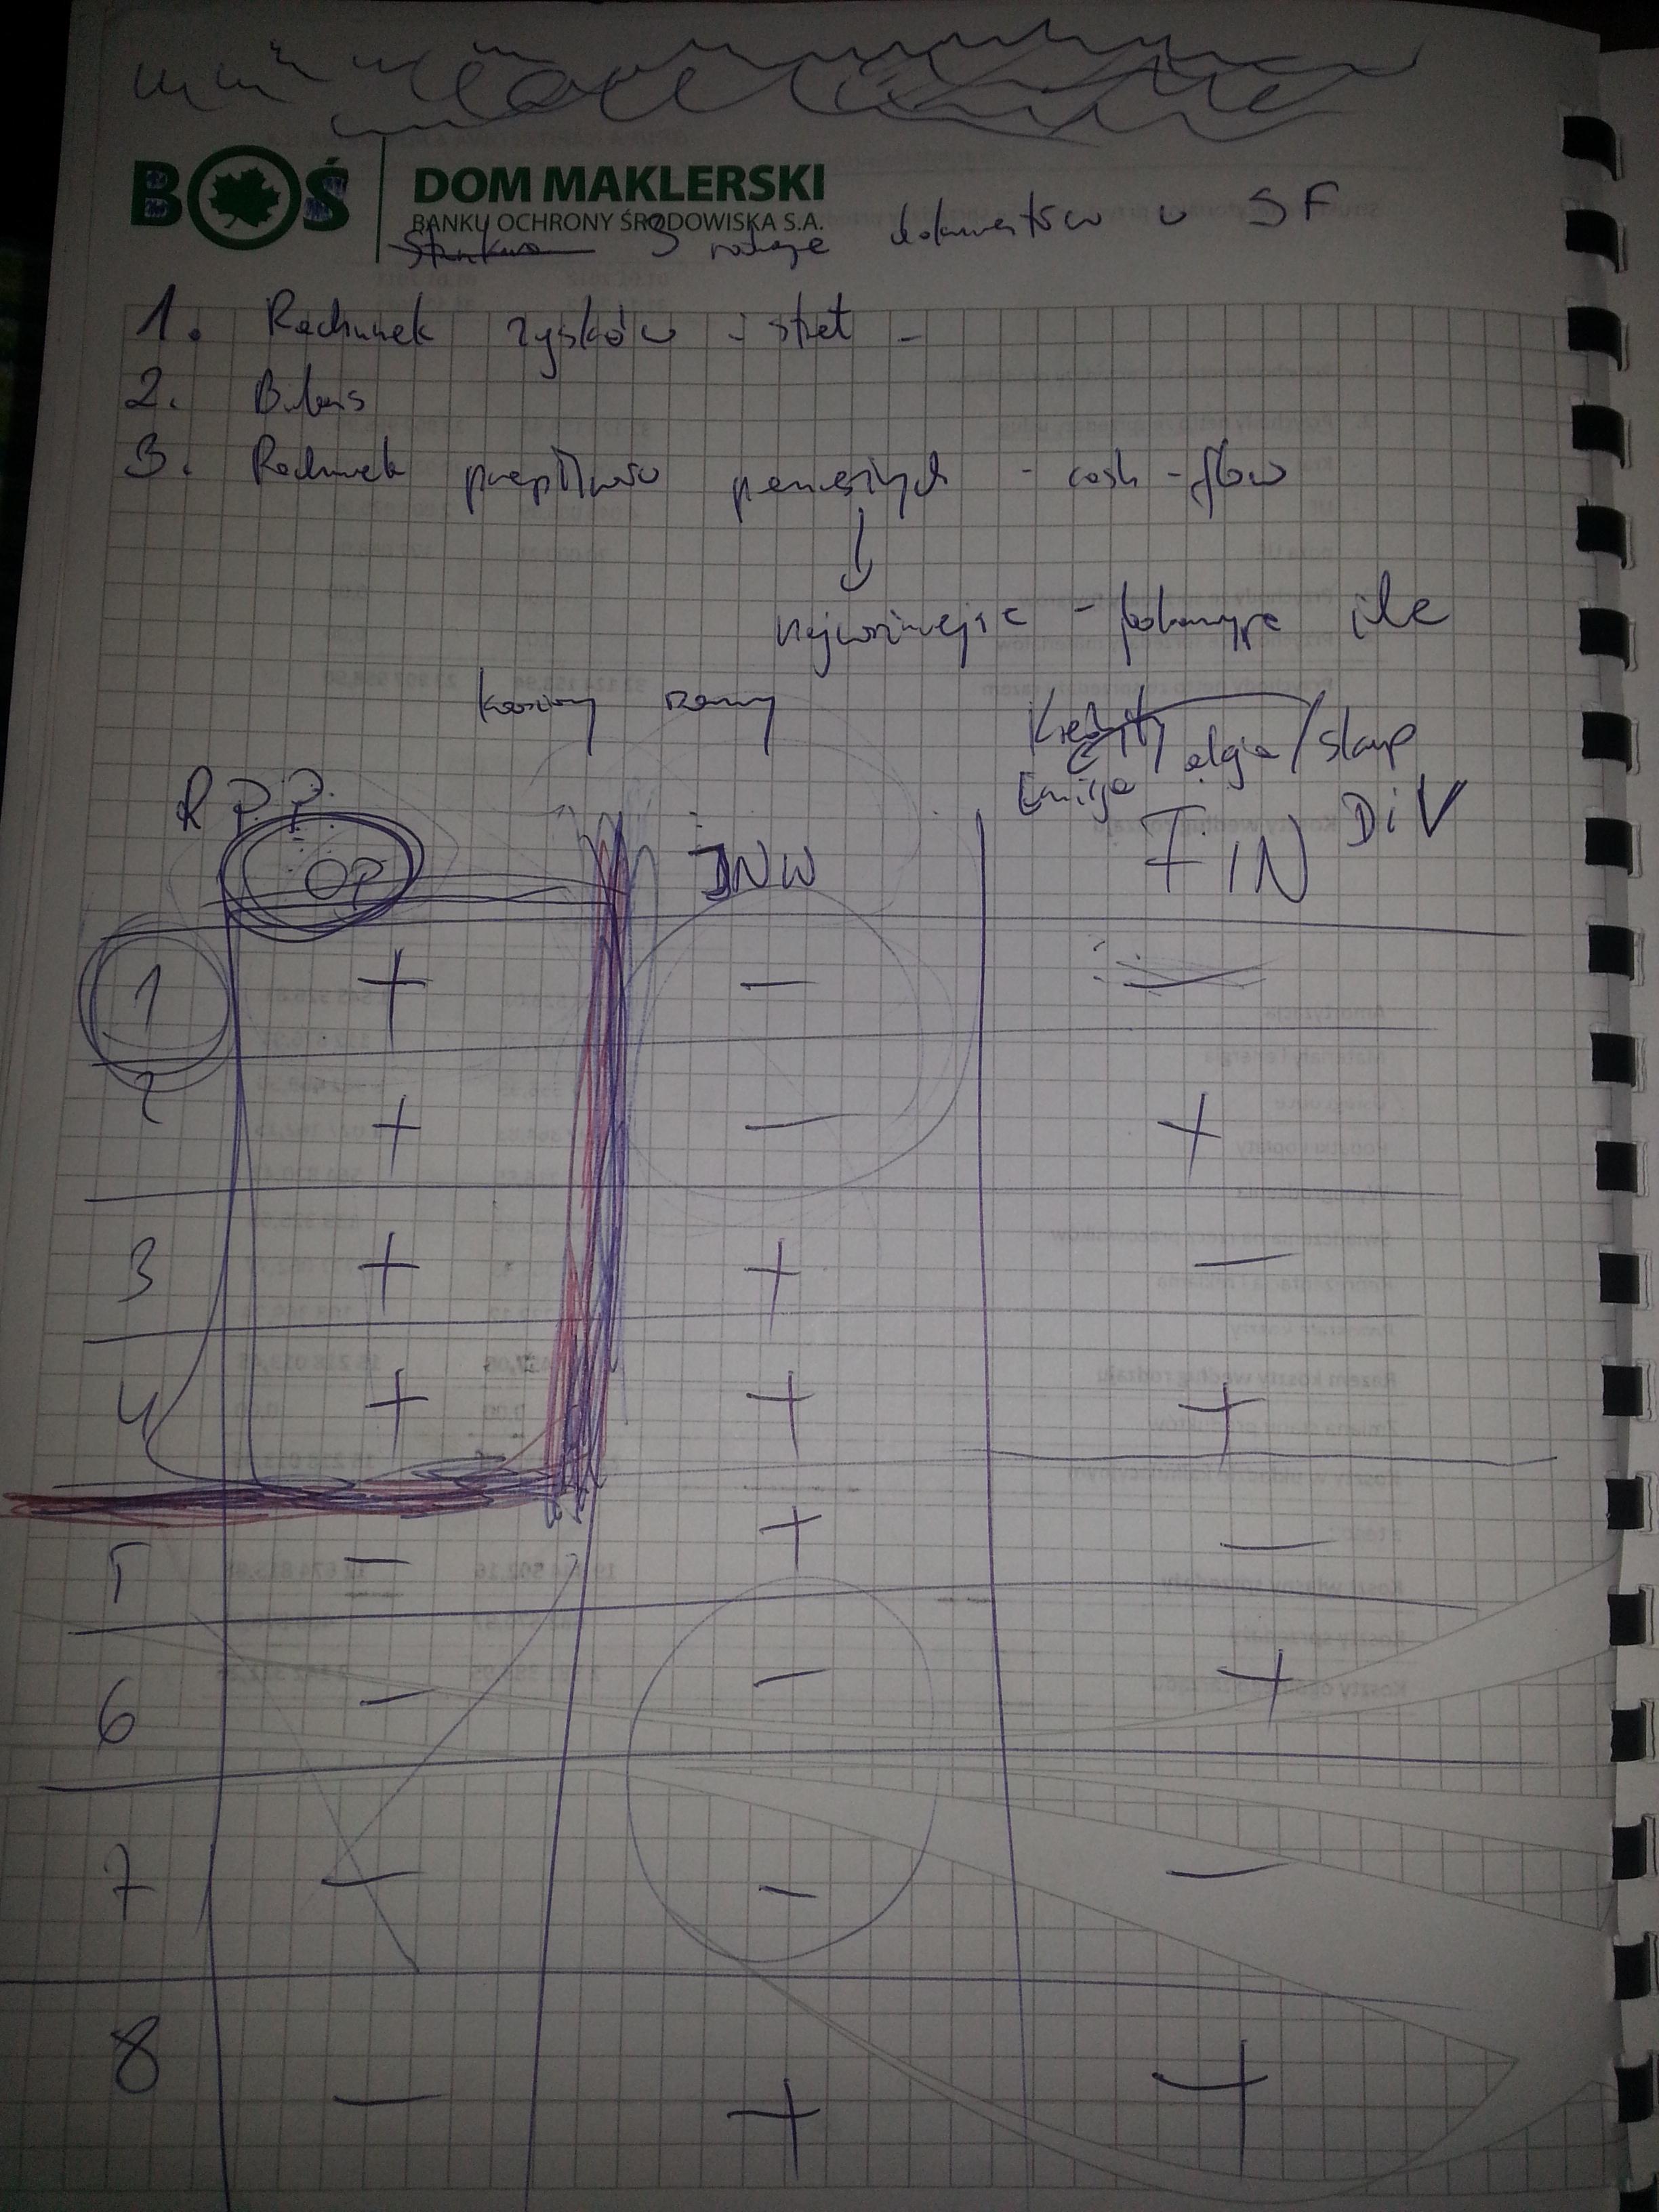 BOŚ DOM MAKLERSKI
BANKU OCHRONY ŚRODOWISKA S.A.
3 rodzaje dokumentów w SF
1. Rachunek zysków i strat -
2. Bilans
3. Rachunek przepływów pieniężnych - cash-flow
najważniejsze - pokazuje ile
Kredyty
Emisja akcji/skup
R.P.P.
OP INW FIN DiV
1 + - -
2 + - +
3 + + -
4 + + +
5 - + -
6 - - +
7 - - -
8 - + +